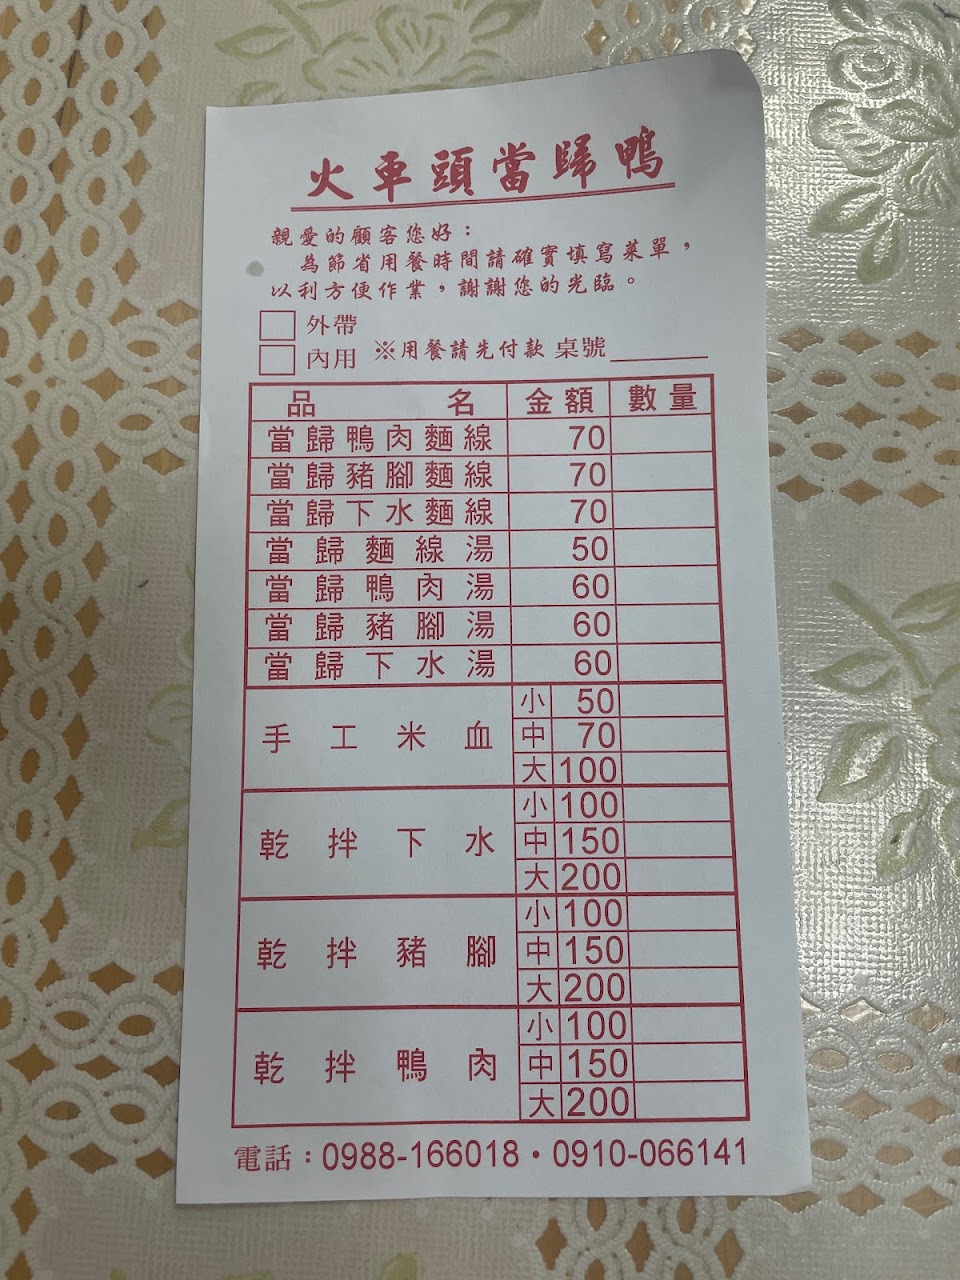 火車頭當歸鴨
親愛的顧客您好：
為節省用餐時間請確實填寫菜單，
以利方便作業，謝謝您的光臨。
外帶
內用 ※用餐請先付款 桌號
品名 金額 數量
當歸鴨肉麵線 70
當歸豬腳麵線 70
當歸下水麵線 70
當歸麵線湯 50
當歸鴨肉湯 60
當歸豬腳湯 60
當歸下水湯 60
手工米血 小 50
中 70
大 100
乾拌下水 小 100
中 150
大 200
乾拌豬腳 小 100
中 150
大 200
乾拌鴨肉 小 100
中 150
大 200
電話：0988-166018・0910-066141